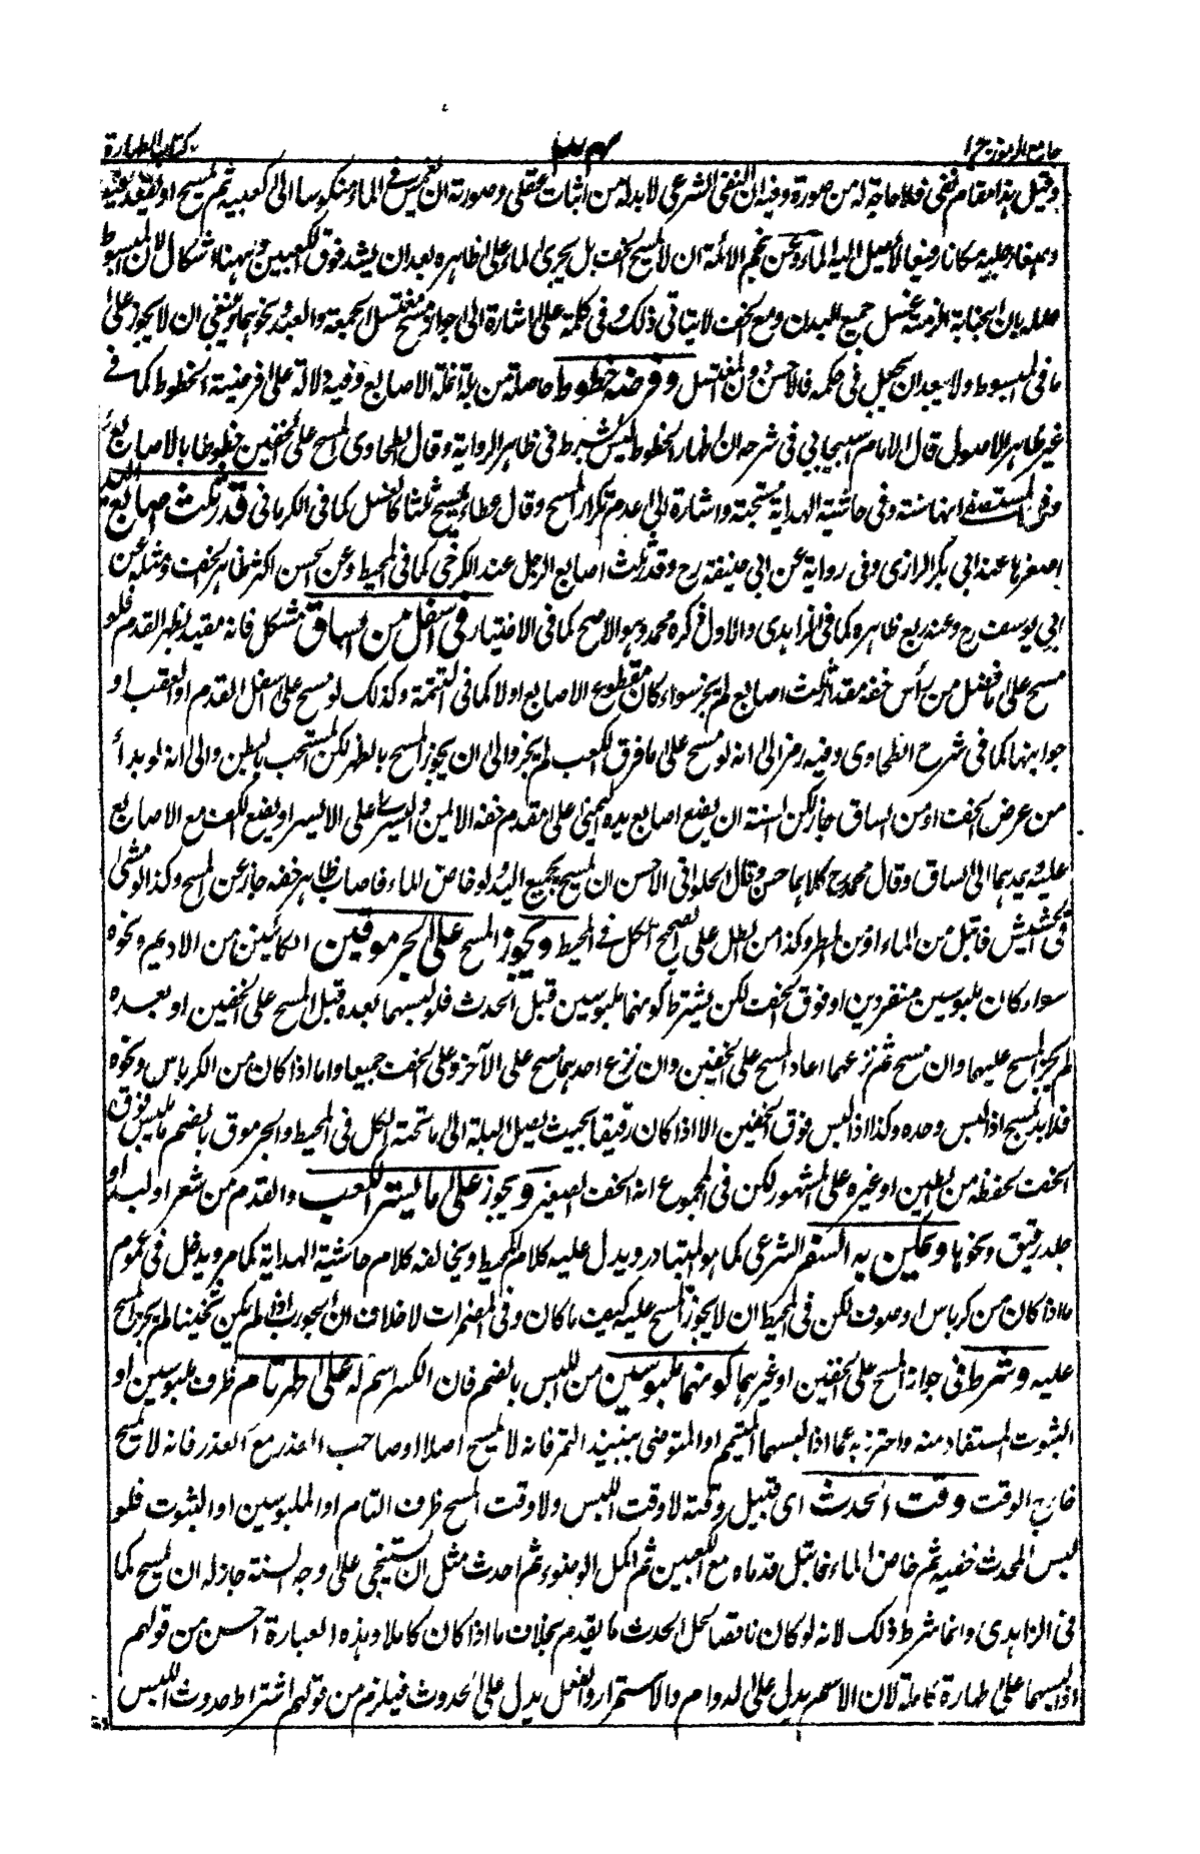 جامع الرموز ج ١ ٣٤ كتاب الطهارة
وقيل هذا مقام نفى فلا حاجة له من صورة وفيه ان النفى الشرعى لا بد له من اثبات عقلى وصورته ان فى الماء منكوسا الى كعبيه ثم يمسح او يقعد
عليه مكانا رفيعا لا يصل اليه الماء وعن نجم الائمة ان لا يمسح الخف بل يجرى الماء على ظاهره بعد ان يشد فوق الكعبين وههنا اشكال لان المبسوط
بان الجنابة الزمته غسل جميع البدن ومع الخف لا يتاتى ذلك وفى كلمة على اشارة الى جواز مسح مغتسل الجمعة والعيد ونحوهما وينبغى ان لا يجوز على
ما فى المبسوط ولا يبعد ان يجعل فى حكمه فالاحسن دون المغتسل وفرضه خطوط حاصلة من بلة انملة الاصابع وفيه دلالة على فرضية الخطوط كما فى
غير ظاهر الاصول قال الامام سبيجابى فى شرحه ان اظهار الخطوط ليس بشرط فى ظاهر الرواية وقال الطحاوى المسح على الخفين خطوطا بالاصابع
وفى المستصفى انها سنة وفى حاشية الهداية مستحبة واشارة الى عدم تكرار المسح وقال عطاء يمسح ثلثا كالغسل كما فى الكرمانى قدر ثلث اصابع اليد
اصغرها عند ابى بكر الرازى وفى رواية عن ابى حنيفة رح وقدر ثلث اصابع الرجل عند الكرخى كما فى المحيط وعن الحسن اكثر ظاهر الخف ومثله عن
ابى يوسف رح وعنه ربع ظاهره كما فى الزاهدى والاول ذكره محمد وهو الاصح كما فى الاختيار فى اسفل من الساق مشكل فانه مقيد بظهر القدم فلو
مسح على ما فضل من رأس خفه مقدار ثلث اصابع لم يجز سواء كان مقطوع الاصابع او لا كما فى التتمة وكذلك لو مسح على اسفل القدم او العقب او
جوانبها كما فى شرح الطحاوى وفيه رمز الى انه لو مسح على ما فوق الكعب لم يجز والى ان يجوز المسح بالظهر لكن المستحب بالبطن والى انه لو بدأ
من عرض الخف او من الساق جاز لكن السنة ان يضع اصابع يده اليمنى على مقدم خفه الايمن واليسرى على الايسر او يضع الكف مع الاصابع
عليه ويمدهما الى الساق وقال محمد رح كلاهما حسن وقال الحلوانى الاحسن ان يمسح بجميع اليد ولو خاض الماء فاصاب ظاهر خفه جاز عن المسح وكذا لو مشى
فى الحشيش فابتل من الماء او من المطر وكذا من الطل على الصحيح الكل فى المحيط ويجوز المسح على الجرموقين الكائنين من الاديم ونحوه
سواء كان ملبوسين منفردين او فوق الخف لكن يشترط كونهما ملبوسين قبل الحدث فلو لبسهما بعده قبل المسح على الخفين او بعده
لم يجز المسح عليهما وان مسح ثم نزعهما اعاد المسح على الخفين وان نزع احدهما مسح على الآخر وعلى الخف جميعا واما اذا كان من الكرباس ونحوه
فلا يمسح اذا لبس وحده وكذا اذا لبس فوق الخفين الا اذا كان رقيقا بحيث يصل البلة الى ما تحته الكل فى المحيط والجرموق بالضم ما يلبس فوق
الخف لحفظه من الطين او غيره على المشهور لكن فى المجموع انه الخف الصغير ويجوز على ما يستر الكعب والقدم من شعر او لبد او
جلد رقيق ونحوها ويمكن به السفر الشرعى كما هو المتبادر ويدل عليه كلام المحيط ويخالفه كلام حاشية الهداية كما مر ويدخل فى عموم
ما اذا كان من كرباس او صوف لكن فى المحيط ان لا يجوز المسح عليه كيف ما كان وفى المضمرات لا خلاف ان الجورب اذا لم يكن ثخينا لم يجز المسح
عليه وشرط فى جواز المسح على الخفين او غيرهما كونهما ملبوسين من اللبس بالضم فان الكسر اسم له على طهر تام ظرف ملبوسين او
الثبوت المستفاد منه واحترز به عما اذا لبسهما المتيمم او المتوضى بنبيذ التمر فانه لا يمسح اصلا او صاحب العذر مع العذر فانه لا يمسح
خارج الوقت وقت الحدث اى قبيل وقته لا وقت اللبس ولا وقت المسح ظرف التام او الملبوسين او الثبوت فلو
لبس المحدث خفيه ثم خاض الماء فابتل قدماه مع الكعبين ثم اكمل الوضوء ثم احدث مثل ان يستنجى على وجه السنة جاز له ان يمسح كما
فى الزاهدى وانما شرط ذلك لانه لو كان ناقصا لحل الحدث ما بقدم بخلاف ما اذا كان كاملا وهذه العبارة احسن من قولهم
اذا لبسهما على طهارة كاملة لان الاسم يدل على الدوام والاستمرار والفعل يدل على الحدوث فيلزم من قولهم اشتراط حدوث اللبس